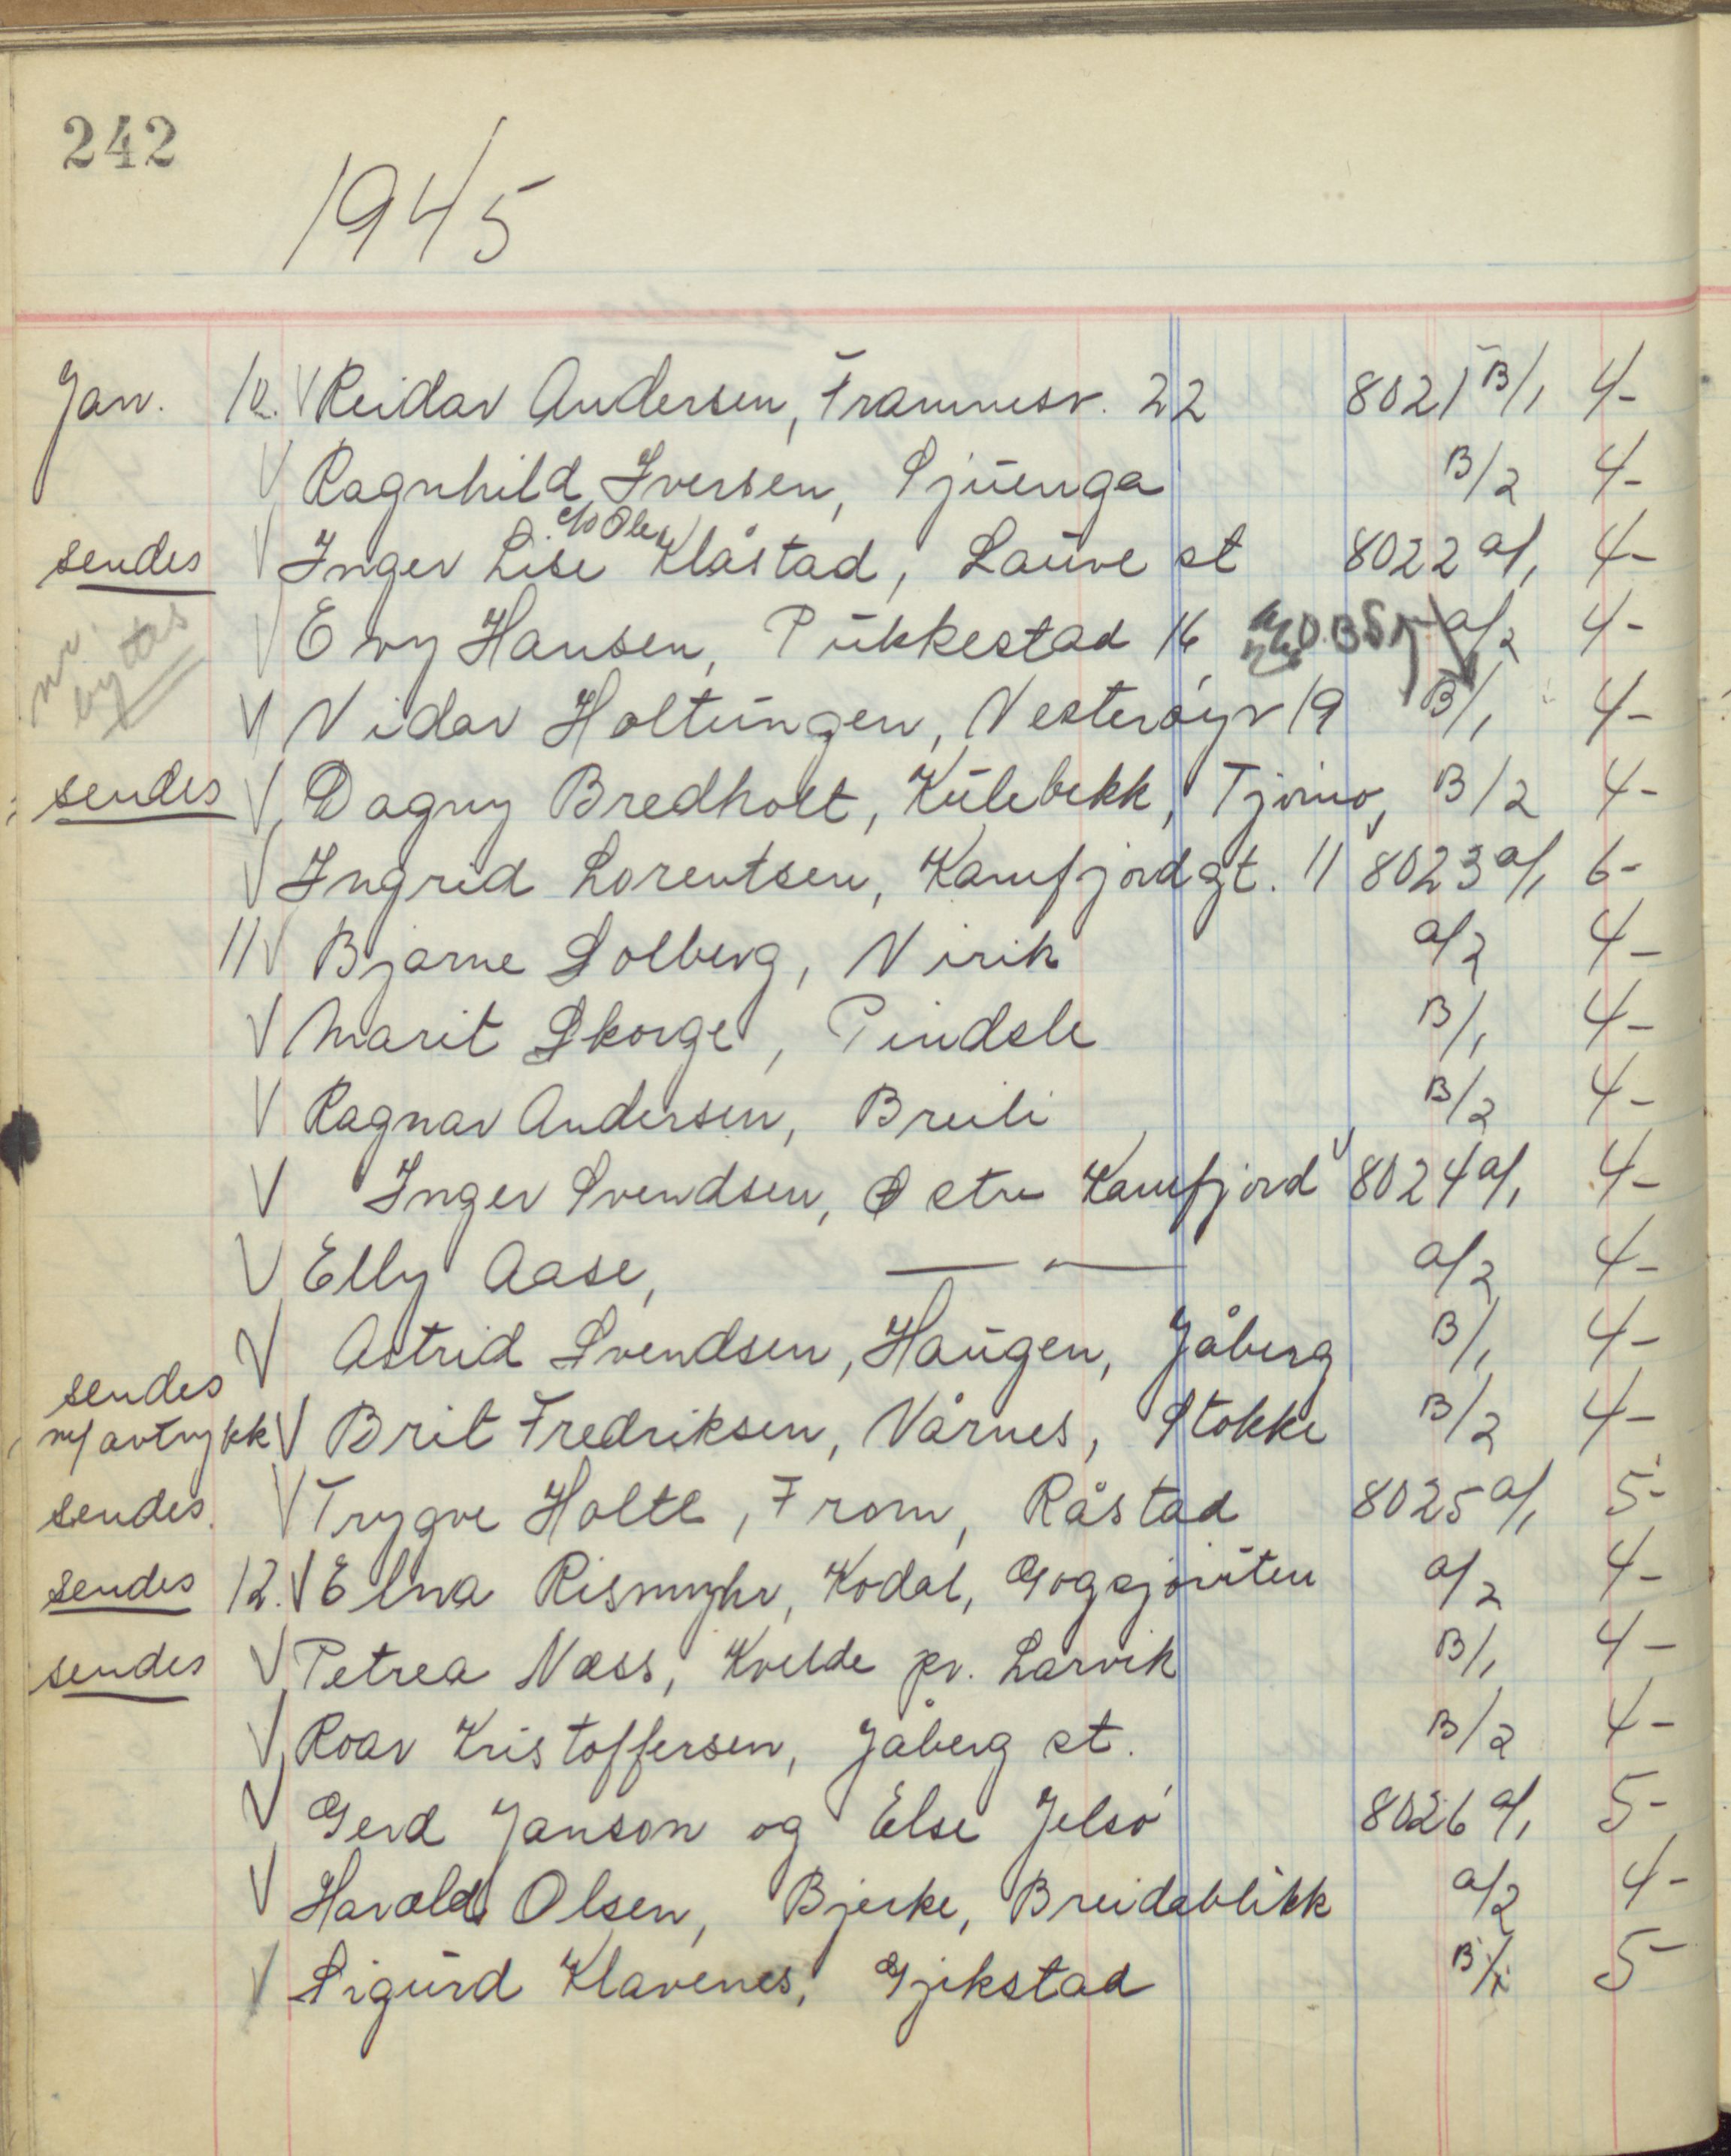 242
1945
Jan. 10. V Reidar Andersen, Framnesv. 22 8021 B/1 4-
V Ragnhild Iversen, Sjuenga B/2 4-
c/o Olen
sendes V Inger Lise Klåstad, Lauve st 8022 a/1 4-
nr. byttes V Evy Hansen, Pukkestad 16 OBS! a/2 4-
V Vidar Holtungen, Nesterøyv 19 B/1 4-
sendes V Dagny Bredholt, Kulebekk, Tjømø, B/2 4-
V Ingrid Lorentsen, Kamfjordgt. 11 8023 a/1 6-
11 V Bjarne Solberg, Virik a/2 4-
V Marit Skorge, Pindsle B/1 4-
V Ragnar Andersen, Breili B/2 4-
V Inger Svendsen, Østre Kamfjord 8024 a/1 4-
V Elly Aase, — " — a/2 4-
V Astrid Svendsen, Haugen, Jåberg B/1 4-
sendes
m/avtrykk V Brit Fredriksen, Vårnes, Stokke B/2 4-
sendes. V Trygve Holte, From, Råstad 8025 a/1 5-
sendes 12. V Elna Rismyhr, Kodal, Gogsjøruten a/2 4-
sendes V Petrea Næss, Kvelde pr. Larvik B/1 4-
V Roar Kristoffersen, Jåberg st. B/2 4-
V Gerd Janson og Else Jelsø 8026 a/1 5-
V Harald Olsen, Bjerke, Breidablikk a/2 4-
V Sigurd Klavenes, Gjekstad B/1 5-